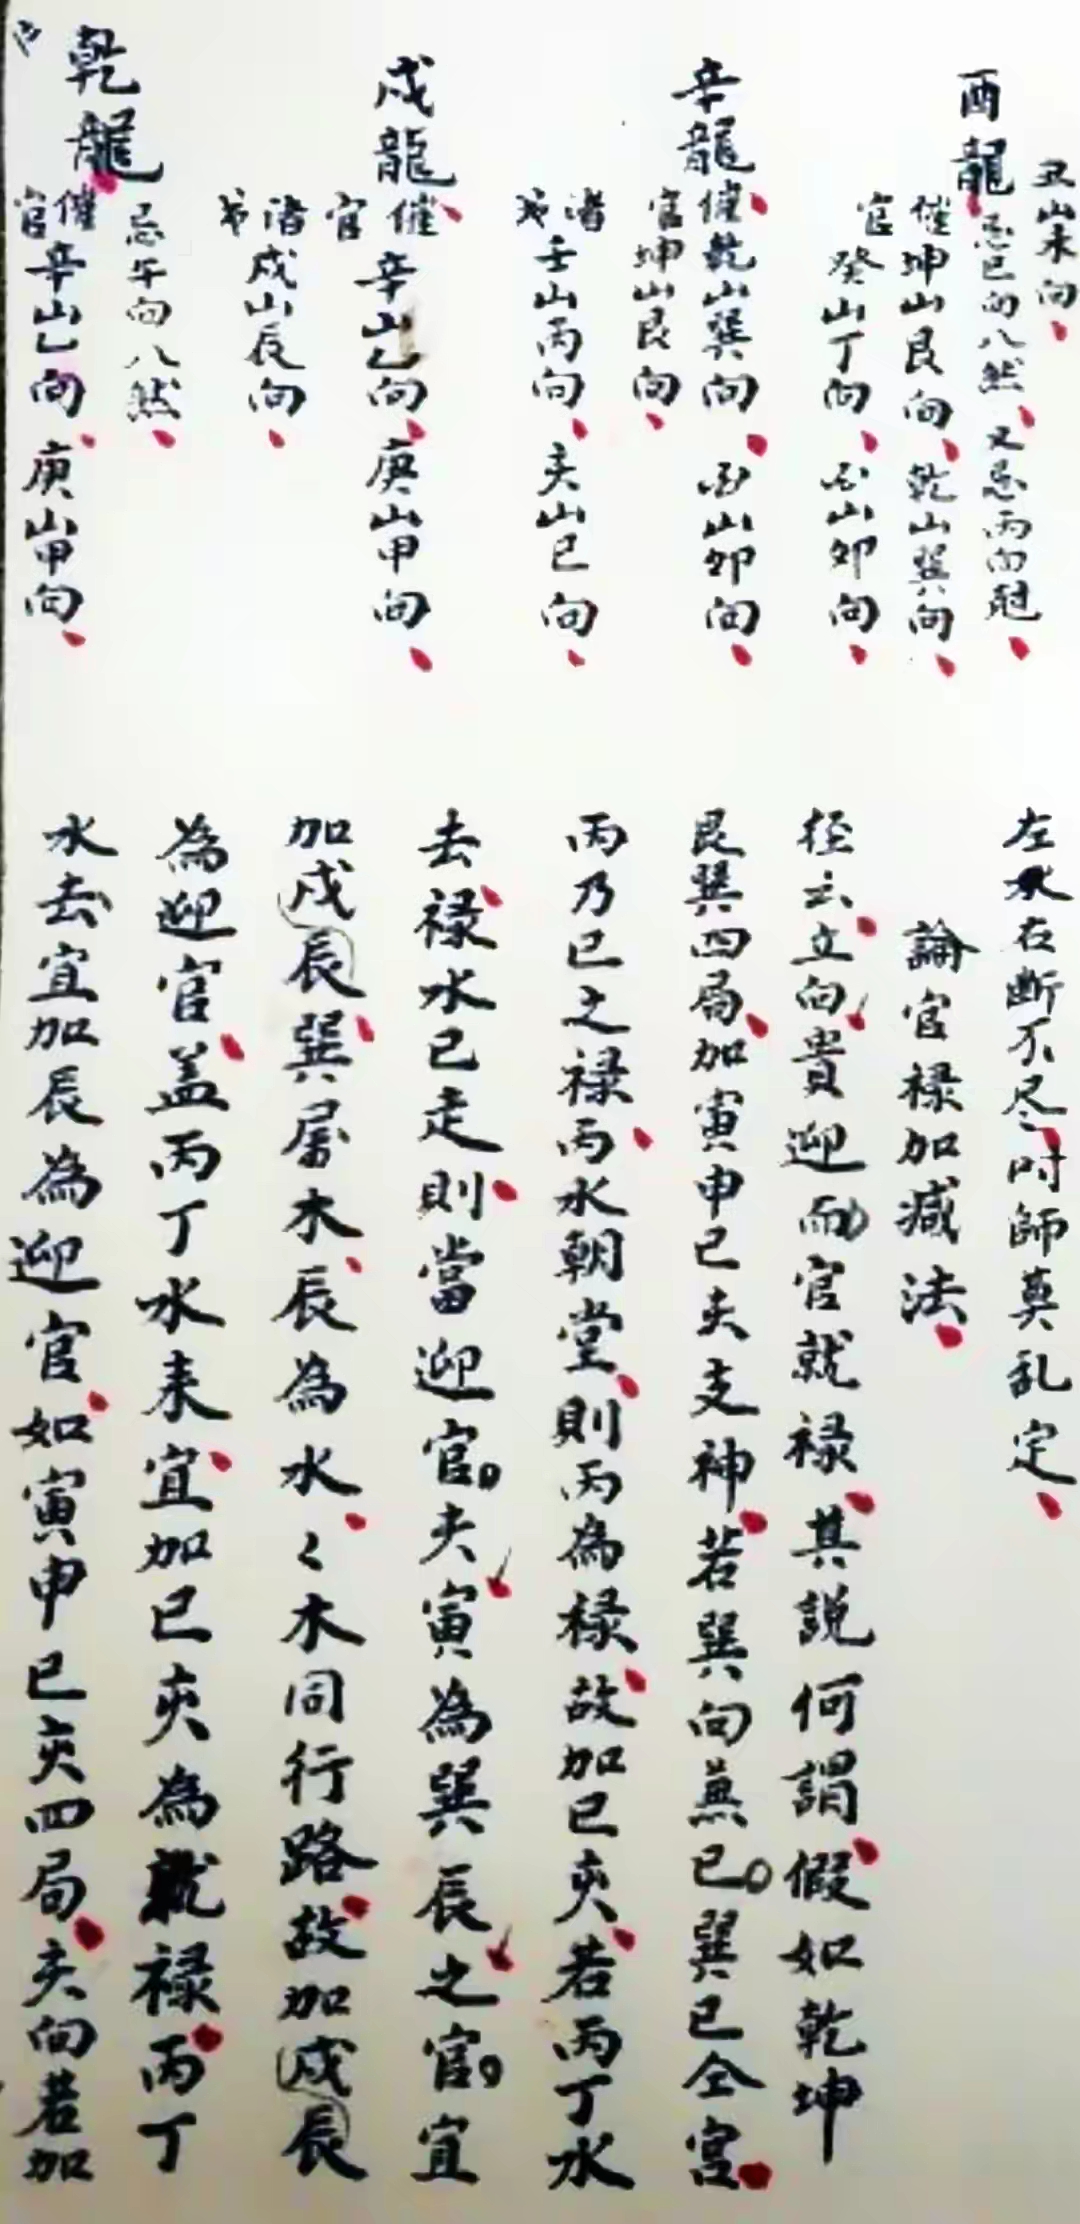 丑山未向
酉龍
忌巳向八煞
又忌丙向
催官
坤山艮向
乾山巽向
癸山丁向
酉山卯向
辛龍
催官
乾山巽向
酉山卯向
坤山艮向
壬山丙向
亥山巳向
戌龍
催官
辛山乙向
庚山甲向
戌山辰向
乾龍
忌午向八煞
催官
辛山乙向
庚山甲向
左水右断不尽时師莫乱定
論官禄加減法
径云立向貴迎而官就禄其説何謂假如乾坤
艮巽四局加寅申巳亥支神若巽向兼巳巽巳仝宮
丙乃巳之禄丙水朝堂則丙為禄故加巳亥若丙丁水
去禄水已走則當迎官亥寅為巽辰之官宜
加戌辰巽屬木辰為水々木同行路故加戌辰
為迎官盖丙丁水来宜加巳亥為就禄丙丁
水去宜加辰為迎官如寅申巳亥四局亥向若加